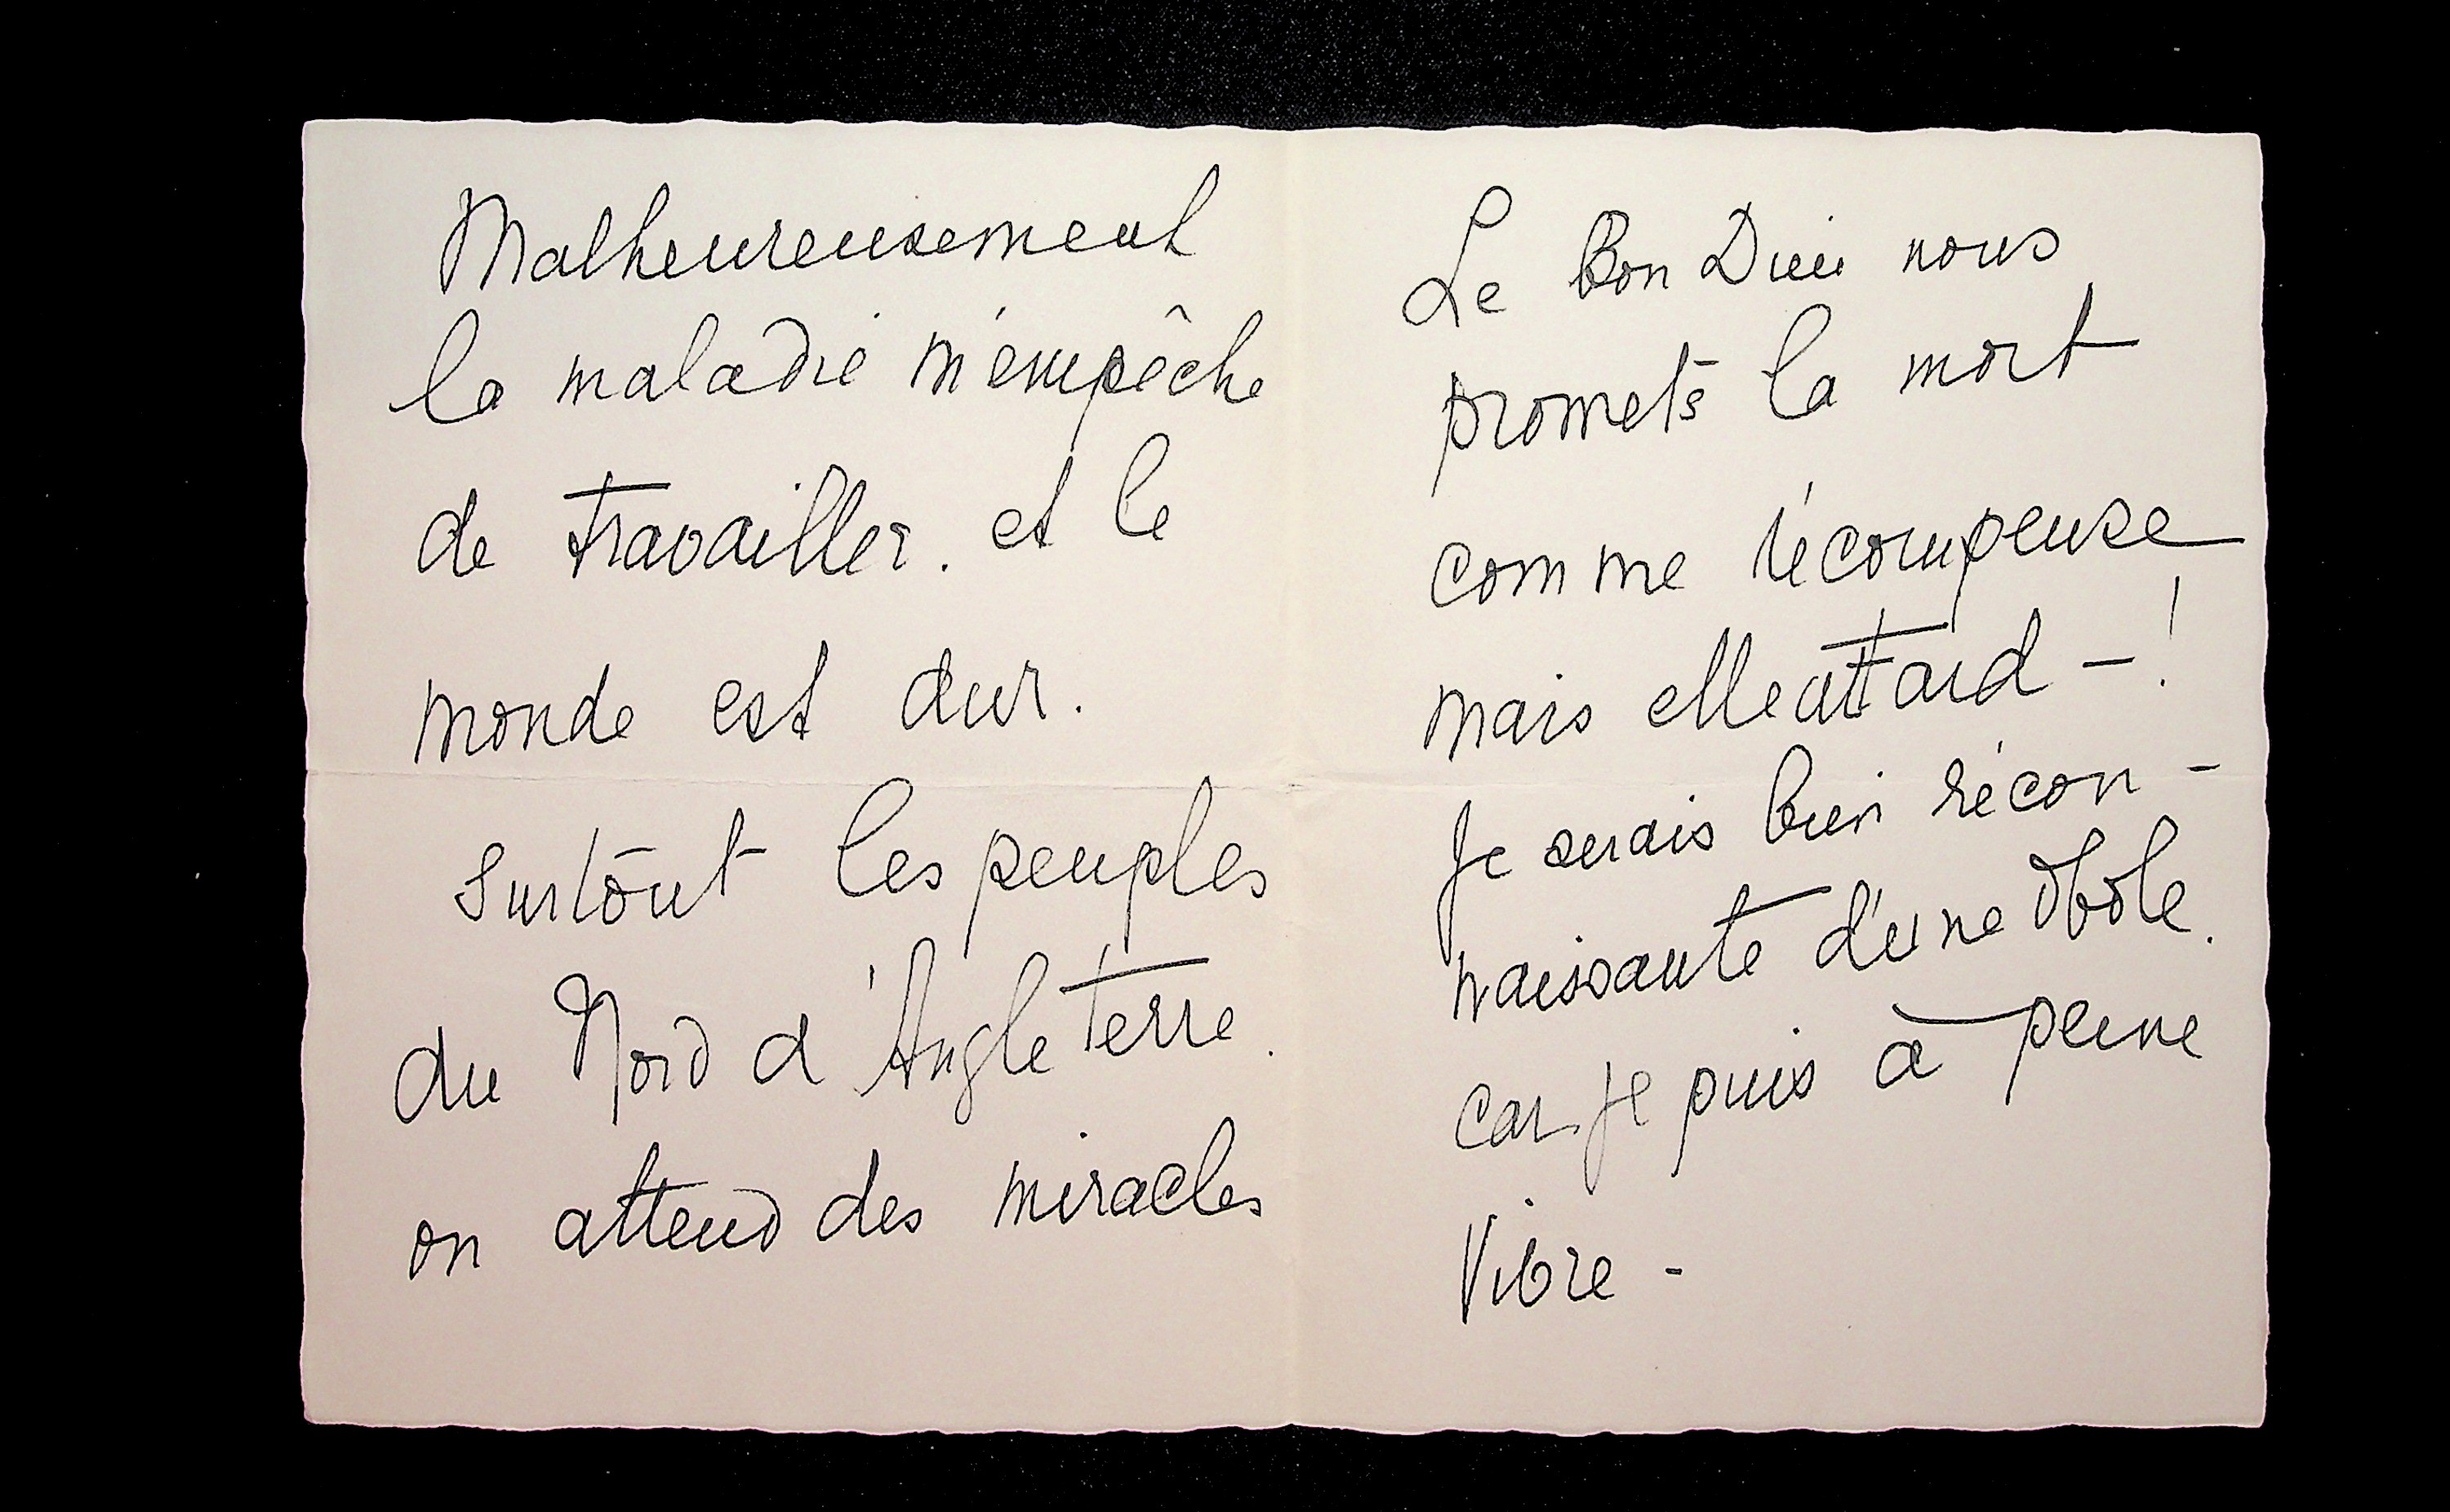 Malheureusement
la maladie m'empêche
de travailler. et le
monde est dur.
Surtout les peuples
du Nord d'Angleterre.
on attend des miracles
Le Bon Dieu nous
promets la mort
comme récompense
mais elle attard - !
Je serais bien récon -
naissante d'une obole.
car je puis à peine
vivre -